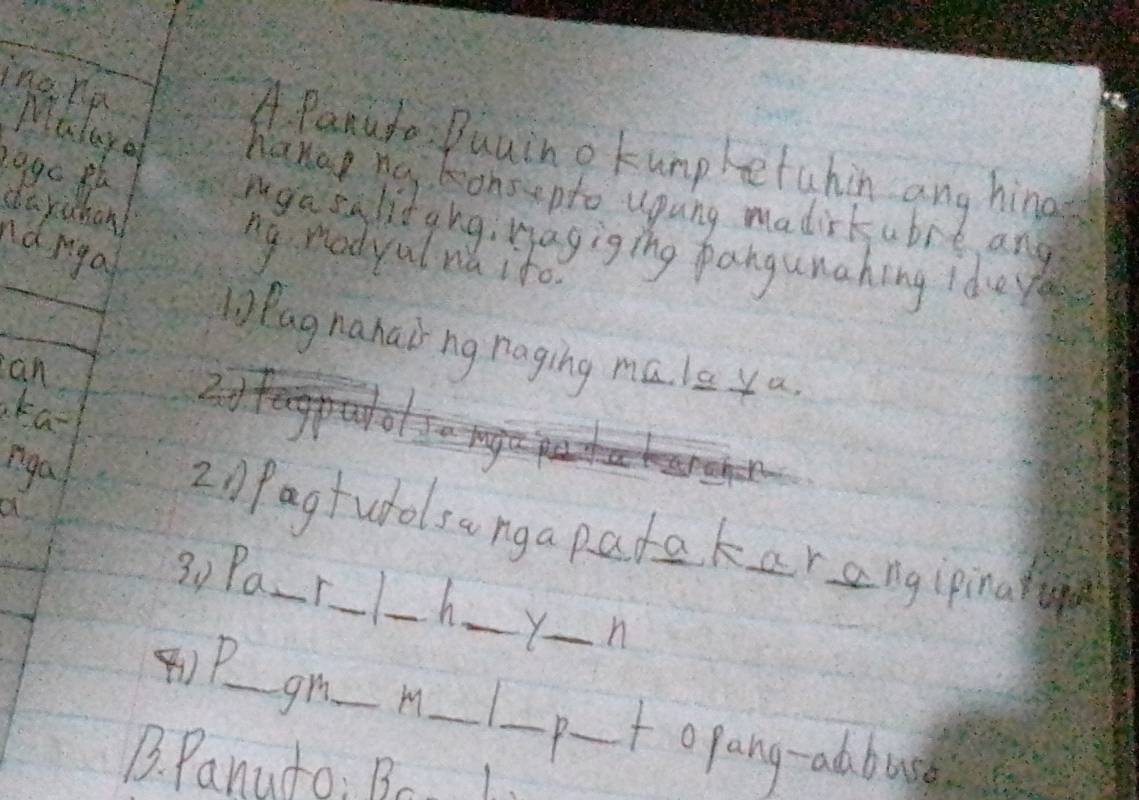 ino na
Malaya
dayuhan
na mga
an
aka-
mga
a
A. Panuto: Buuin o kumpletuhin ang hina-
hanap ng konsepto upang madiskubre ang
mga salitang magiging pangunahing ideya
ng modyul na ito.
1.) Pagnanais ng maging malaya.
2.) Pagputol sa mga patakaran
2.) Pagtutol sa mga patakarang ipinatupa
3.) Pa_r_l_h_y_n
4.) P_gm_m_l_p_t o pang-aabuso
B. Panuto: Ba